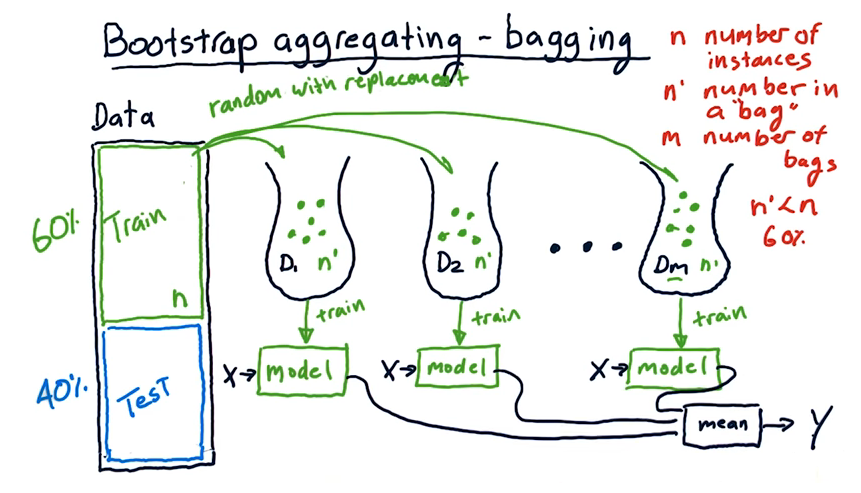 Bootstrap aggregating - bagging
n number of
instances
n' number in
a "bag"
m number of
bags
n'<n
60%
random with replacement
Data
60%
Train
n
40%
Test
D1 n'
D2 n'
Dm n'
train
train
train
X→ model
X→ model
X→ model
mean → Y